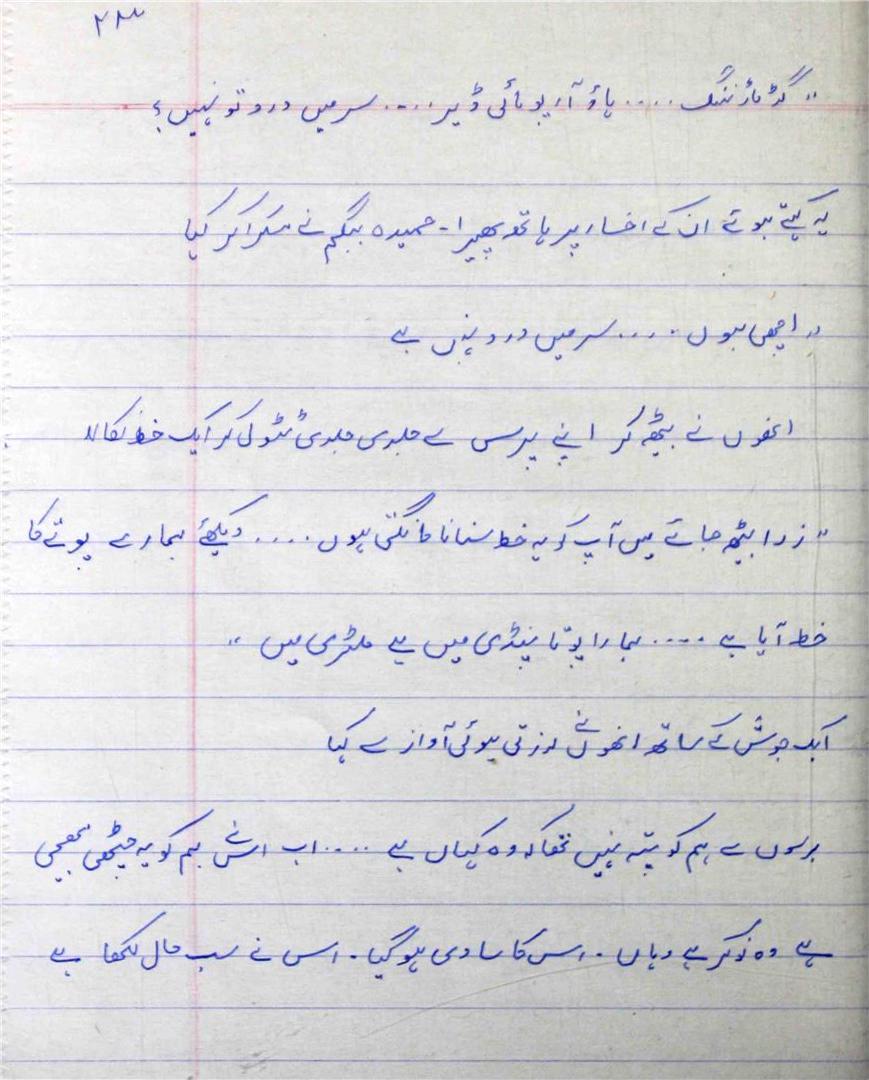 ۲۳
"گڈ مارننگ .... ہاؤ آر یو مائی ڈیر .... سر میں درد تو نہیں؟
یہ کہتے ہوئے ان کے اخسار پر ہاتھ پھیرا - حمیدہ بیگم نے مسکرا کر کہا
"اچھی ہوں .... سر میں درد نہیں ہے
انھوں نے بیٹھ کر اپنے پرس سے جلدی جلدی ٹٹول کر ایک خط نکالا
"زرا بیٹھ جائے میں آپ کو یہ خط سنانا مانگتی ہوں .... دیکھئے ہمارے پوتے کا
خط آیا ہے .... ہمارا پوتا پنڈی میں ہے ملٹری میں "
ایک جوش کے ساتھ انھوں نے لرزتی ہوئی آواز سے کہا
برسوں سے ہم کو پتہ نہیں تھا کہ وہ کہاں ہے .... اب اس نے ہم کو یہ چٹھی بھیجی
ہے وہ نوکر ہے وہاں . اس کا سادی ہو گیا . اس نے سب حال لکھا ہے